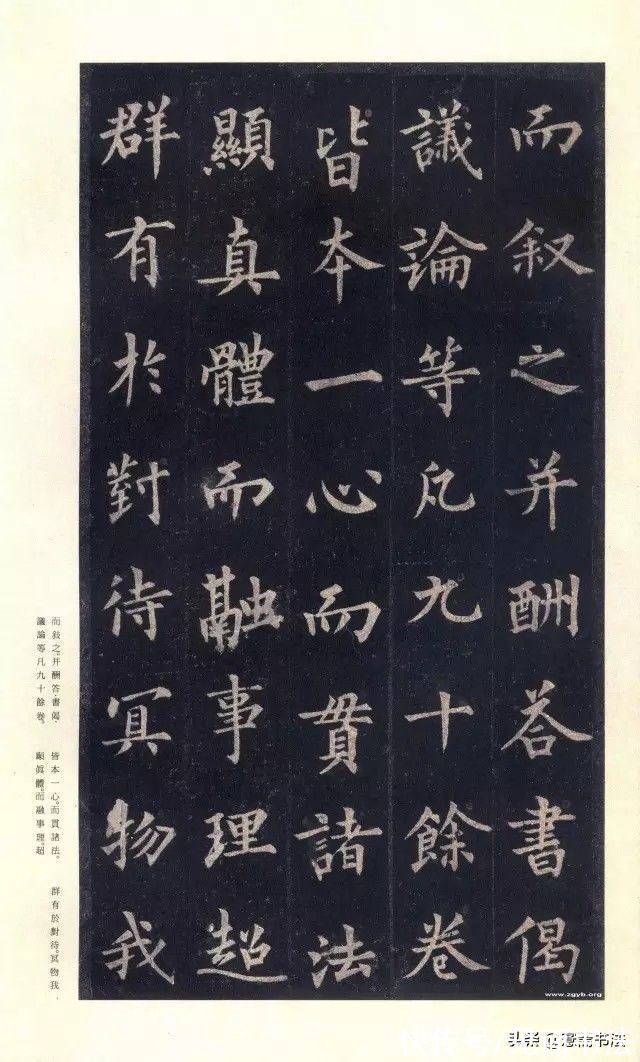 而叙之并酬荅書偈
議論等凡九十餘卷
皆本一心而貫諸法
顯真體而融事理超
群有於對待冥物我
而敍之。并酬答書偈。
議論等凡九十餘卷。
皆本一心。而貫諸法。
顯眞體。而融事理。超
群有於對待。冥物我
www.zgyb.org